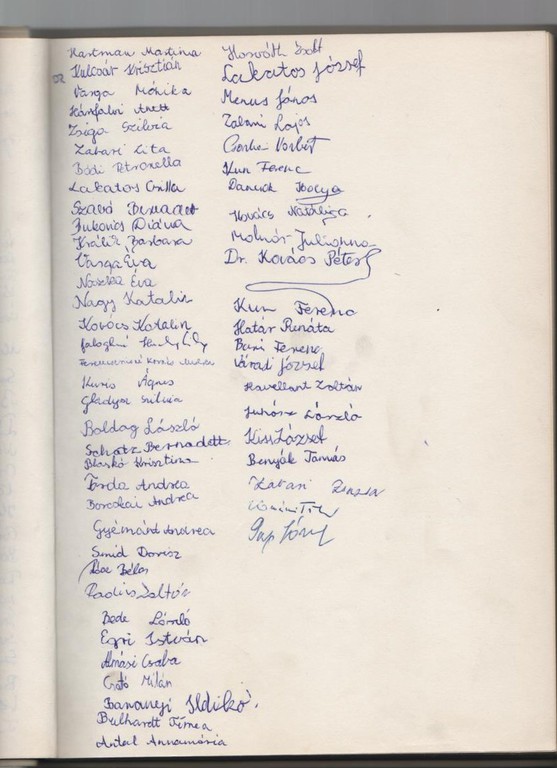 Hartman Martina
Kulcsár Krisztián
Varga Mónika
Hámfalvi Anett
Zsiga Szilvia
Zatari Zita
Bódi Petronella
Lakatos Csilla
Szabó Bernadett
Bukovics Diána
Králik Barbara
Varga Éva
Noszka Éva
Nagy Katalin
Kovács Katalin
Kuris Ágnes
Gladysz Szilvia
Boldog László
Schatz Bernadett
Blaskó Krisztina
Torda Andrea
Borockai Andrea
Gyémánt Andrea
Smid Dorisz
Béla
Zoltán
Bede László
Egri István
Almási Csaba
Csató Milán
Bananyi Ildikó
Bulhardt Tímea
Antal Annamária
Horváth Zsolt
Lakatos József
Menus János
Zalani Lajos
Norbert
Kun Ferenc
Dancsik Ibolya
Kovács Natália
Molnár Julianna
Dr. Kovács Péter
Kun Ferenc
Határ Renáta
Buri Ferenc
Várasi József
Havellant Zoltán
Juhász László
Kiss József
Benyák Tamás
Zatari
Pap